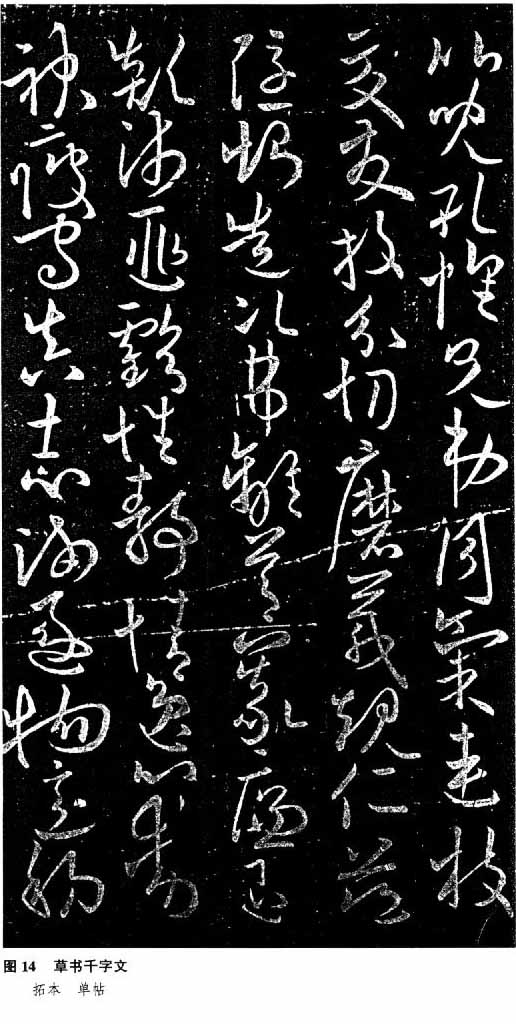 比兒孔懷兄弟同氣連枝
交友投分切磨箴規仁慈
隱惻造次弗離節義廉退
顛沛匪虧性靜情逸心動
神疲守真志滿逐物意移
图 14 草书千字文
拓本 单帖